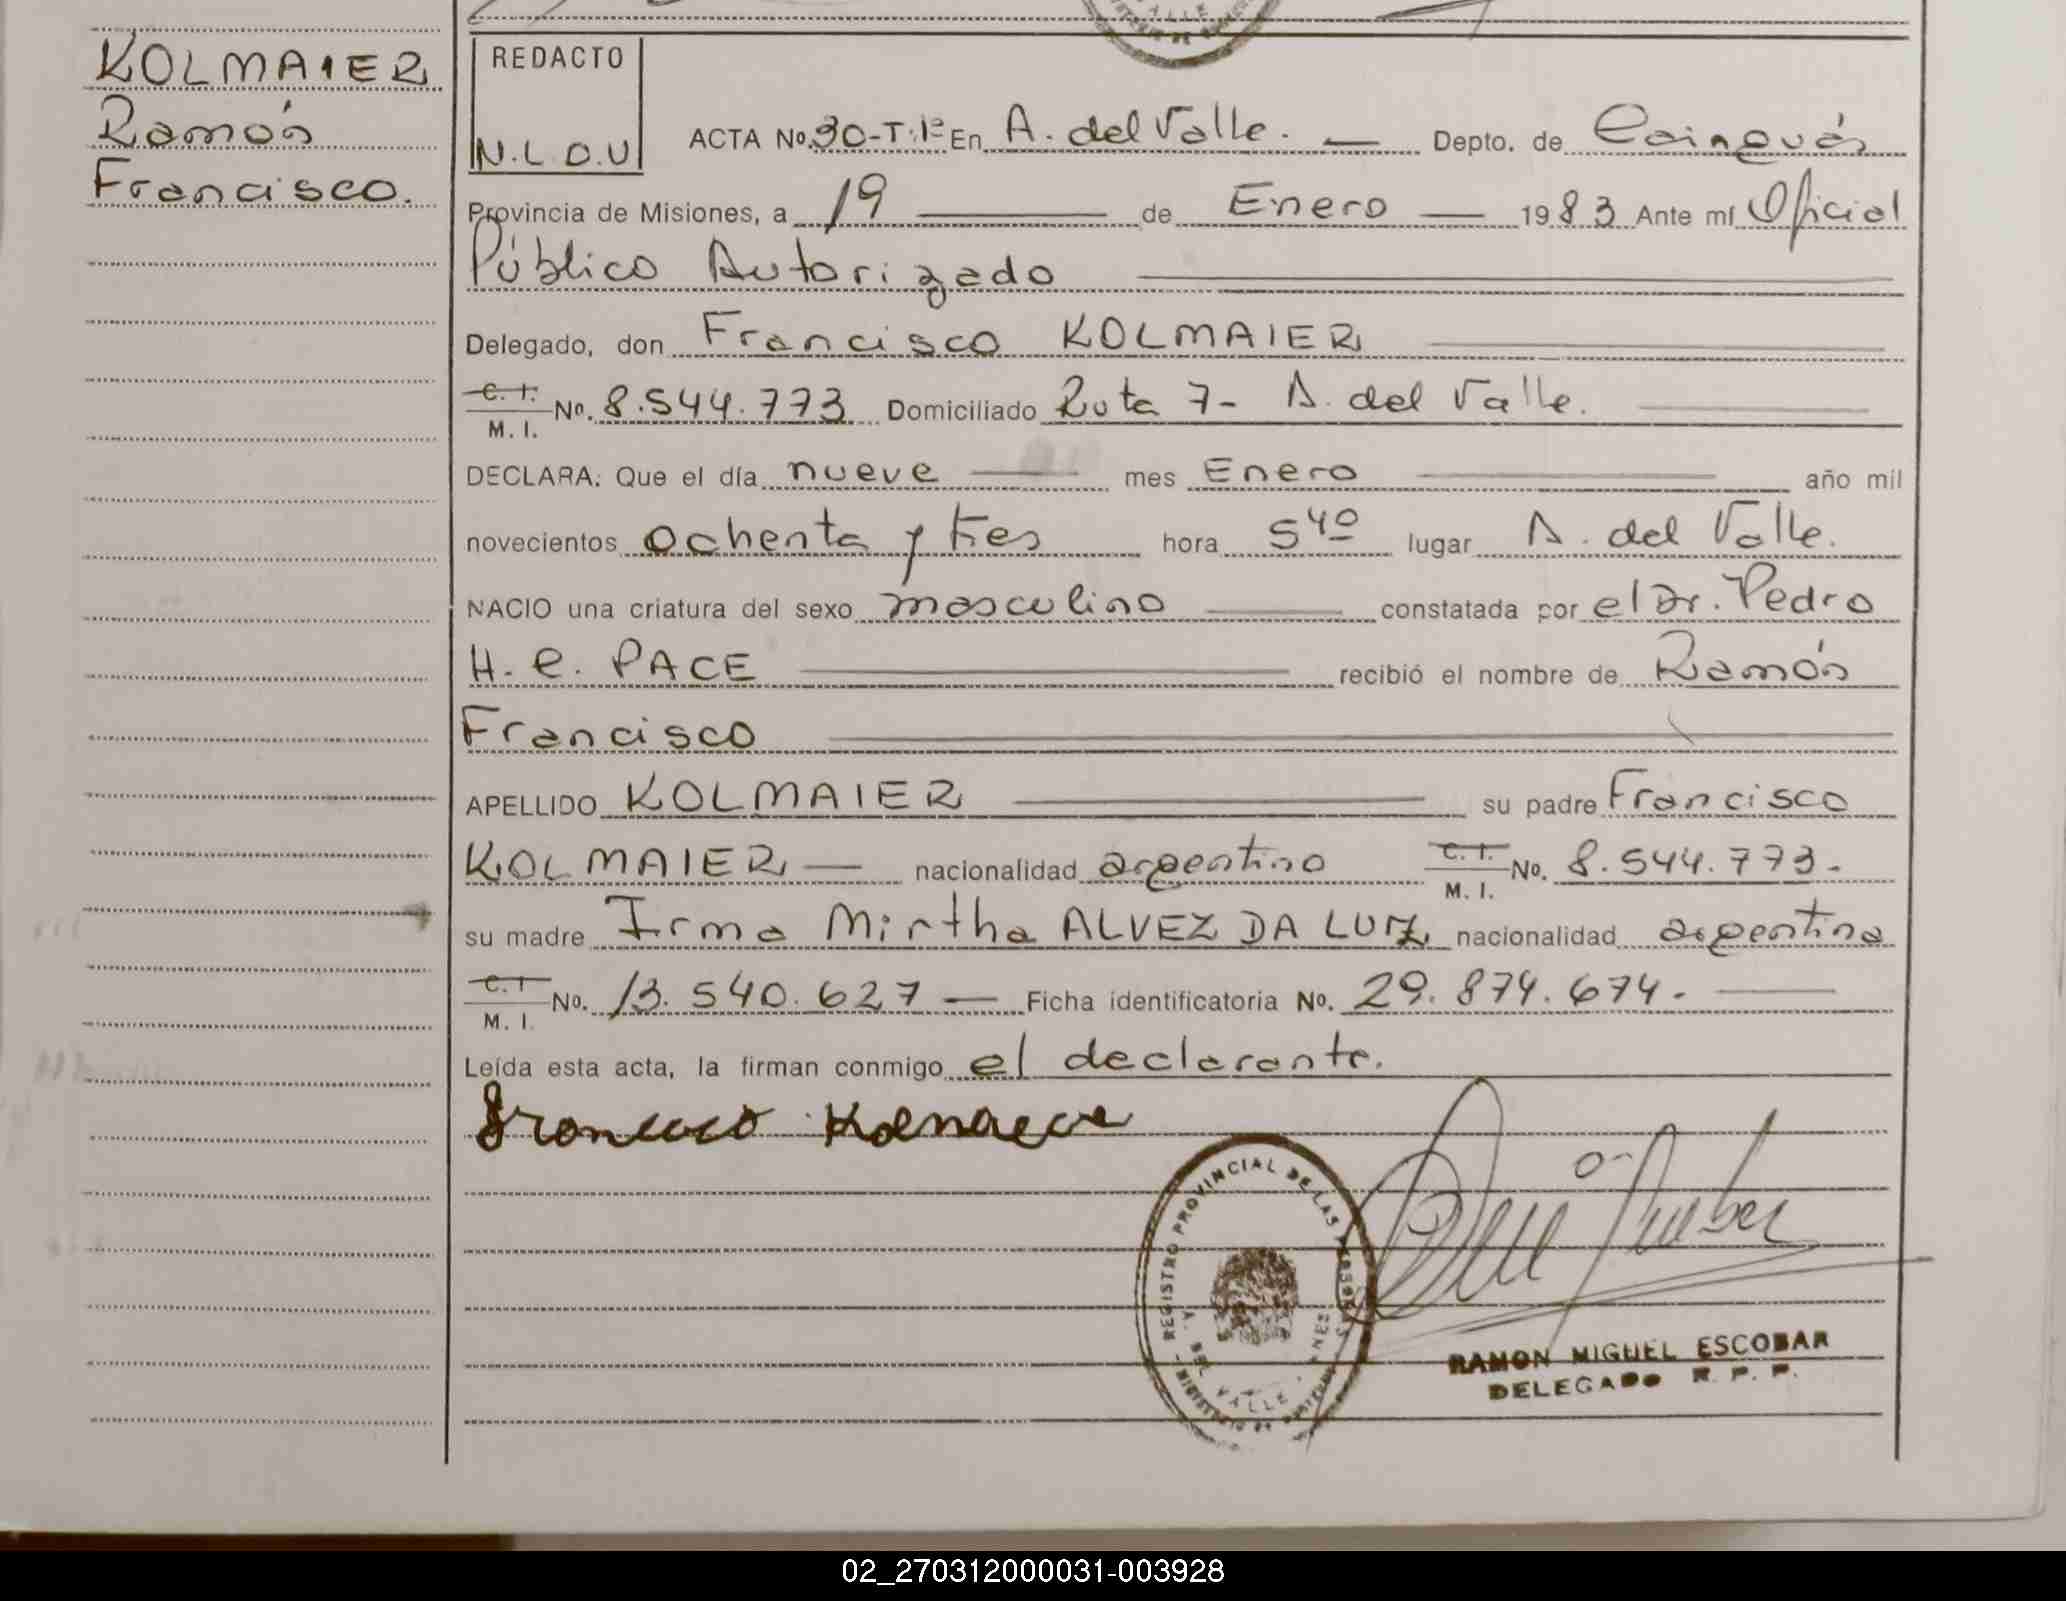 KOLMAIER
Ramón
Francisco.
REDACTO
N.L.O.U
ACTA No. 30-T:1º En A. del Valle. — Depto. de Cainguás
Provincia de Misiones, a 19 — de Enero — 1983 Ante mí Oficial
Público Autorizado
Delegado, don Francisco KOLMAIER
C. I. M. I. No. 8.544.773 Domiciliado Ruta 7- A. del Valle.
DECLARA: Que el día nueve mes Enero año mil
novecientos ochenta y tres hora 5 40 lugar A. del Valle.
NACIO una criatura del sexo masculino constatada por el Dr. Pedro
H. C. PACE recibió el nombre de Ramón
Francisco
APELLIDO KOLMAIER su padre Francisco
KOLMAIER — nacionalidad argentino C. I. M. I. No. 8.544.773.-
su madre Irma Mirtha ALVEZ DA LUIZ nacionalidad argentina
C. I M. I. No. 13.540.627 — Ficha identificatoria No. 29.874.674.-
Leída esta acta, la firman conmigo el declarante.
REGISTRO PROVINCIAL DE LAS PERSONAS
A. DEL VALLE
RAMON MIGUEL ESCOBAR
DELEGADO R. P. P.
02_270312000031-003928